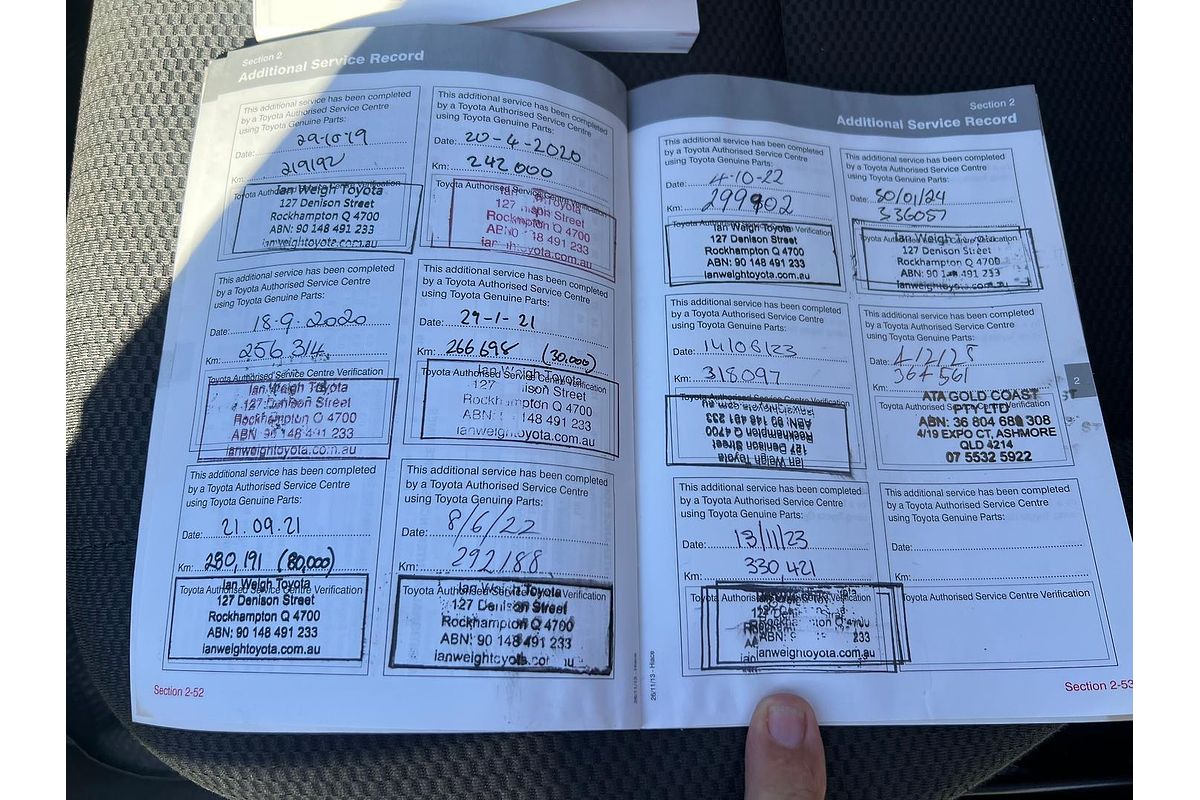 Section 2
Additional Service Record
This additional service has been completed
by a Toyota Authorised Service Centre
using Toyota Genuine Parts:
Date: 29-10-19
Km: 219192
Toyota Authorised Service Centre Verification
Ian Weigh Toyota
127 Denison Street
Rockhampton Q 4700
ABN: 90 148 491 233
ianweightoyota.com.au
This additional service has been completed
by a Toyota Authorised Service Centre
using Toyota Genuine Parts:
Date: 20-4-2020
Km: 242 000
Toyota Authorised Service Centre Verification
127 Denison Street
Rockhampton Q 4700
ABN: 90 148 491 233
ianweightoyota.com.au
This additional service has been completed
by a Toyota Authorised Service Centre
using Toyota Genuine Parts:
Date: 18-9-2020
Km: 256,314
Toyota Authorised Service Centre Verification
Ian Weigh Toyota
127 Denison Street
Rockhampton Q 4700
ABN: 90 148 491 233
ianweightoyota.com.au
This additional service has been completed
by a Toyota Authorised Service Centre
using Toyota Genuine Parts:
Date: 29-1-21
Km: 266,698 (30,000)
Toyota Authorised Service Centre Verification
Ian Weigh Toyota
127 Denison Street
Rockhampton Q 4700
ABN: 90 148 491 233
ianweightoyota.com.au
This additional service has been completed
by a Toyota Authorised Service Centre
using Toyota Genuine Parts:
Date: 21.09.21
Km: 280,191 (80,000)
Toyota Authorised Service Centre Verification
Ian Weigh Toyota
127 Denison Street
Rockhampton Q 4700
ABN: 90 148 491 233
ianweightoyota.com.au
This additional service has been completed
by a Toyota Authorised Service Centre
using Toyota Genuine Parts:
Date: 8/6/22
Km: 292,188
Toyota Authorised Service Centre Verification
Ian Weigh Toyota
127 Denison Street
Rockhampton Q 4700
ABN: 90 148 491 233
ianweightoyota.com.au
Section 2-52
Section 2
Additional Service Record
This additional service has been completed
by a Toyota Authorised Service Centre
using Toyota Genuine Parts:
Date: 4-10-22
Km: 299902
Toyota Authorised Service Centre Verification
Ian Weigh Toyota
127 Denison Street
Rockhampton Q 4700
ABN: 90 148 491 233
ianweightoyota.com.au
This additional service has been completed
by a Toyota Authorised Service Centre
using Toyota Genuine Parts:
Date: 30/01/24
Km: 336057
Toyota Authorised Service Centre Verification
Ian Weigh Toyota
127 Denison Street
Rockhampton Q 4700
ABN: 90 148 491 233
ianweightoyota.com.au
This additional service has been completed
by a Toyota Authorised Service Centre
using Toyota Genuine Parts:
Date: 14/06/23
Km: 318097
Toyota Authorised Service Centre Verification
Ian Weigh Toyota
127 Denison Street
Rockhampton Q 4700
ABN: 90 148 491 233
ianweightoyota.com.au
This additional service has been completed
by a Toyota Authorised Service Centre
using Toyota Genuine Parts:
Date:
Km: 367 561
Toyota Authorised Service Centre Verification
ATA GOLD COAST
PTY LTD
ABN: 36 804 688 308
4/19 EXPO CT, ASHMORE
QLD 4214
07 5532 5922
2
This additional service has been completed
by a Toyota Authorised Service Centre
using Toyota Genuine Parts:
Date: 13/11/23
Km: 330 421
Toyota Authorised Service Centre Verification
Rockhampton Q 4700
ianweightoyota.com.au
This additional service has been completed
by a Toyota Authorised Service Centre
using Toyota Genuine Parts:
Date:
Km:
Toyota Authorised Service Centre Verification
26/11/13 - Hiace
26/11/13 - Hiace
Section 2-53